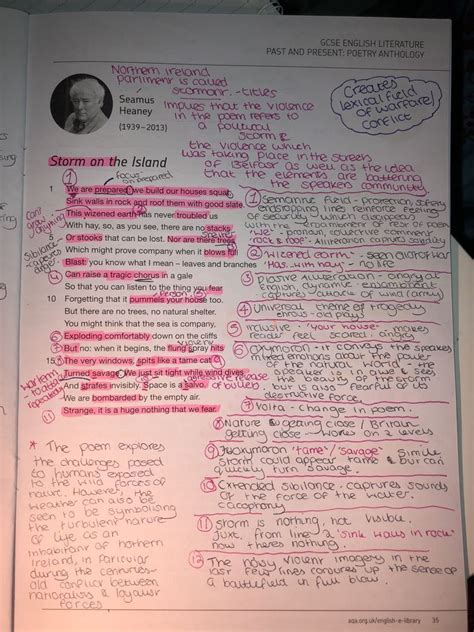 GCSE ENGLISH LITERATURE
PAST AND PRESENT: POETRY ANTHOLOGY
Northern Ireland
parliment is called
stormont - titles
Implies that the violence
in the poem refers to
a political
storm &
the violence which
was taking place in the streets
of Belfast as well as the idea
that the elements are battering
the speakers community
Creates
lexical field
of warfare/
conflict
Seamus
Heaney
(1939–2013)
Storm on the Island
focus
on prepared
1 We are prepared: we build our houses squat,
Sink walls in rock and roof them with good slate.
This wizened earth has never troubled us
With hay, so, as you see, there are no stacks
5 Or stooks that can be lost. Nor are there trees
Which might prove company when it blows full
Blast: you know what I mean – leaves and branches
Can raise a tragic chorus in a gale
So that you can listen to the thing you fear
10 Forgetting that it pummels your house too.
But there are no trees, no natural shelter.
You might think that the sea is company,
Exploding comfortably down on the cliffs
But no: when it begins, the flung spray hits
15 The very windows, spits like a tame cat
Turned savage. We just sit tight while wind dives
And strafes invisibly. Space is a salvo.
We are bombarded by the empty air.
Strange, it is a huge nothing that we fear.
of bullets
1 Semantic field - protection, safety
enjambing lines reinforce feelings
of security - which disappears
with the enjambment of rest of poem
'we' - pronoun, collective comment
'rock & roof' - Alliteration adds solidity
2 'wizened earth' - seen old & war
no life
3 Plosive alliteration - angry
Erosion, dynamic - enjambment
captures attack of wind
4 Universal theme of tragedy
chorus - old plays
5 Inclusive - 'your house' - makes
reader feel scared / angry
6 Oxymoron - it conveys the speakers
mixed emotions about the power
of the natural world - the
speaker is in awe & sees
the beauty of the storm
but is also fearful of its
destructive force
7 Volta - change in poem
8 Nature & getting close / Britain
getting close - works on 2 levels
9 Oxymoron 'tame' / 'savage' simile
storm could appear tame & but can
quickly turn savage.
10 Extended sibilance - captures sounds
of the force of the water.
cacophony
11 Storm is nothing, not visible.
Juxt. from line 2 'sink walls in rock'
now theres nothing.
12 The noisy violent imagery in the
last few lines conjures up the sense of
a battlefield in full blow.
* The poem explores
the challenges posed
to humans exposed
to the wild forces of
nature. However, the
weather can also be
seen to be symbolising
the turbulent nature
of life as an
inhabitant of northern
Ireland, in particular
during the centuries-
old conflict between
nationalists & loyalist
forces.
aqa.org.uk/english-e-library 35